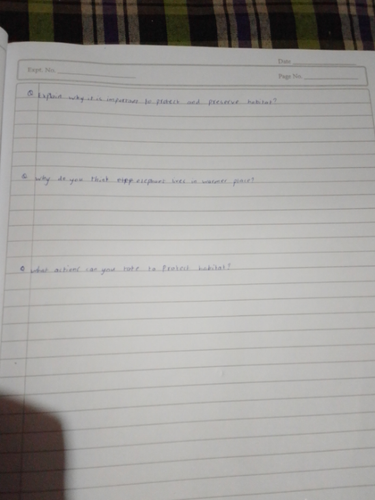 Date
Expt. No.
Page No.
Q Explain why it is important to protect and preserve habitat?
Q Why do you think elephants lives in warmer place?
Q What actions can you take to Protect habitat?